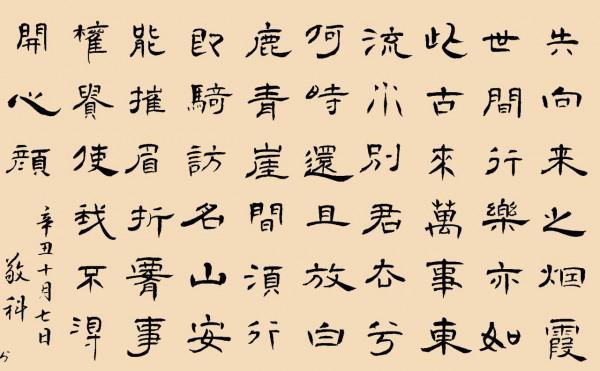 失向来之烟霞
世間行樂亦如
此古来萬事東
流水別君去兮
何時還且放白
鹿青崖間須行
即騎訪名山安
能摧眉折腰事
權貴使我不得
開心顔
辛丑十月七日
敬科